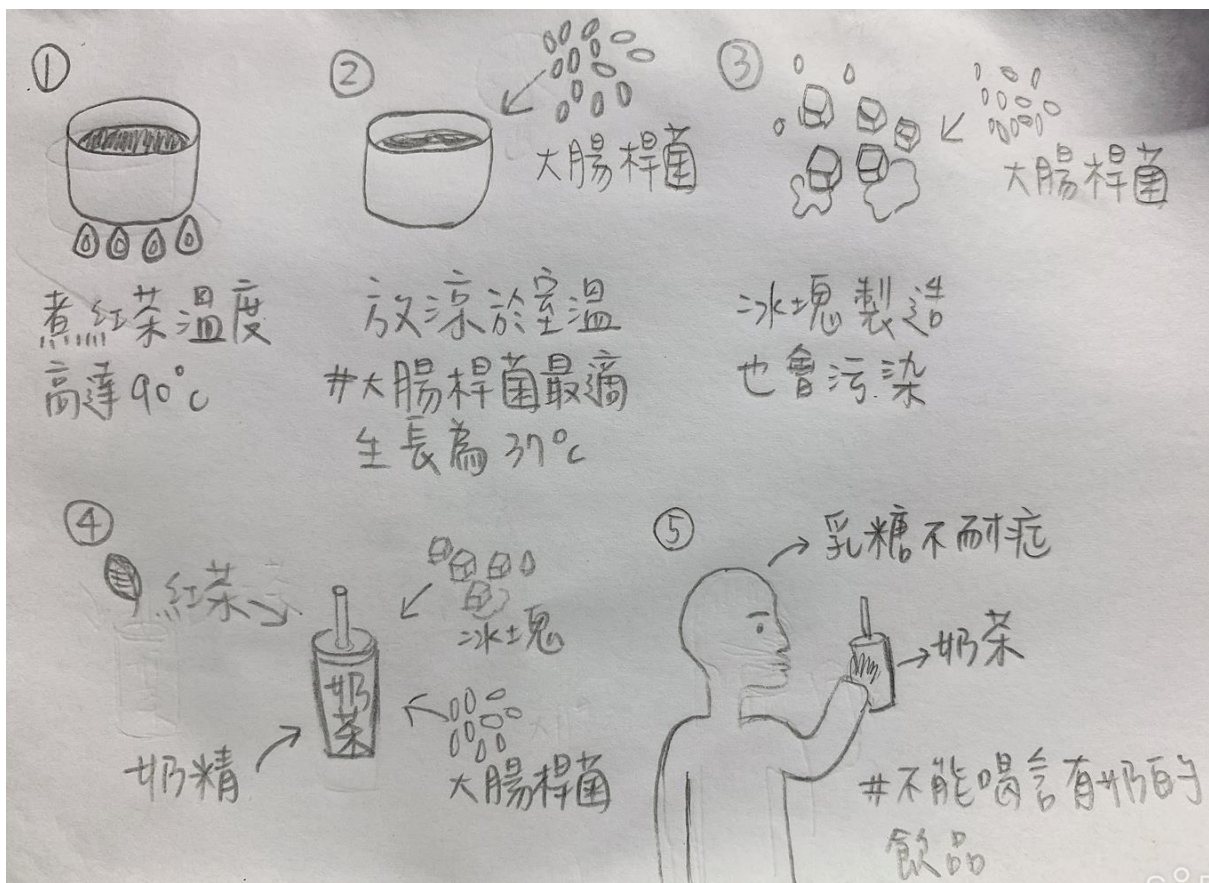 ①
煮紅茶溫度
高達90°C
②
大腸桿菌
放涼於室溫
#大腸桿菌最適
生長為37°C
③
大腸桿菌
冰塊製造
也會污染
④
紅茶
冰塊
奶茶
奶精
大腸桿菌
⑤
乳糖不耐症
奶茶
#不能喝含有奶的
飲品